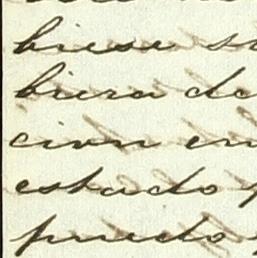 biese s
biera de
cion en
estado
puedo